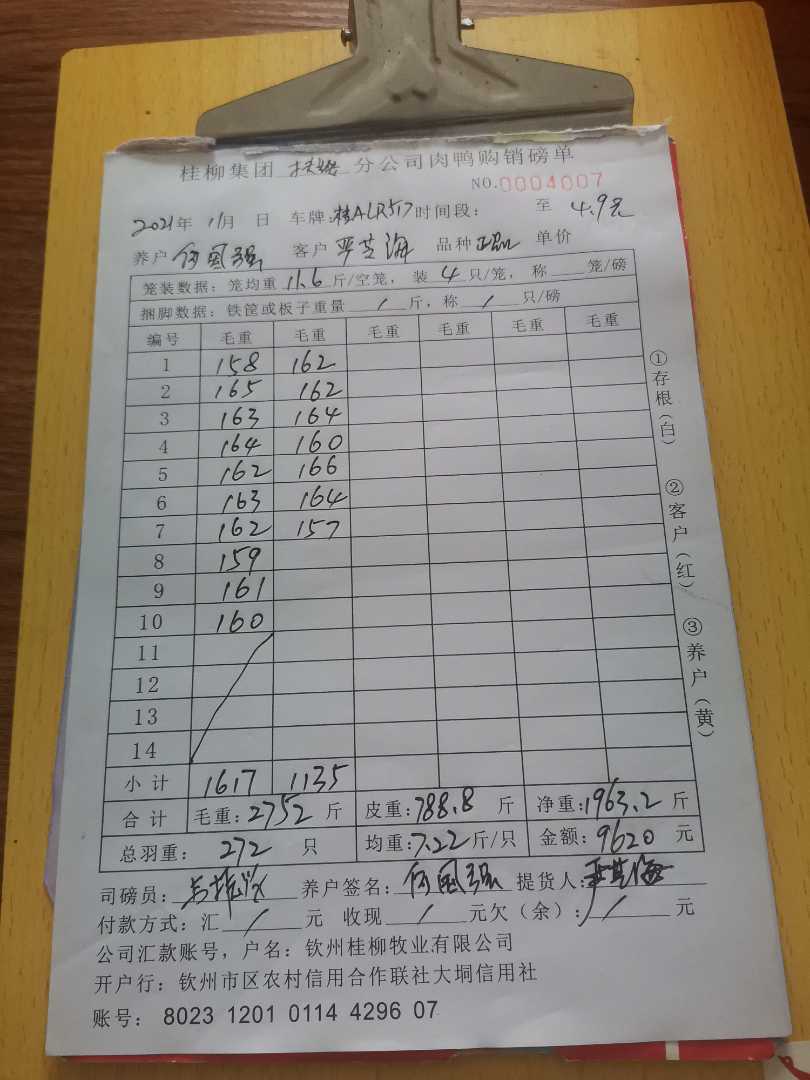 桂柳集团 分公司肉鸭购销磅单
NO.0004007
2021年 11月 日 车牌:桂ALR517 时间段: 至 4.9元
养户 何凤强 客户 严芝海 品种 正品 单价
笼装数据: 笼均重 11.6 斤/空笼, 装 4 只/笼, 称 笼/磅
捆脚数据: 铁筐或板子重量 / 斤, 称 / 只/磅
编号 毛重 毛重 毛重 毛重 毛重 毛重
1 158 162
2 165 162
3 163 164
4 164 160
5 162 166
6 163 164
7 162 157
8 159
9 161
10 160
11
12
13
14
小计 1617 1135
合计 毛重:2752 斤 皮重:788.8 斤 净重:1963.2 斤
总羽重: 272 只 均重:7.22斤/只 金额: 9620 元
司磅员: 养户签名: 何凤强 提货人: 严芝海
付款方式: 汇 / 元 收现 / 元欠(余): / 元
公司汇款账号, 户名: 钦州桂柳牧业有限公司
开户行: 钦州市区农村信用合作联社大垌信用社
账号: 8023 1201 0114 4296 07
①存根(白)
②客户(红)
③养户(黄)